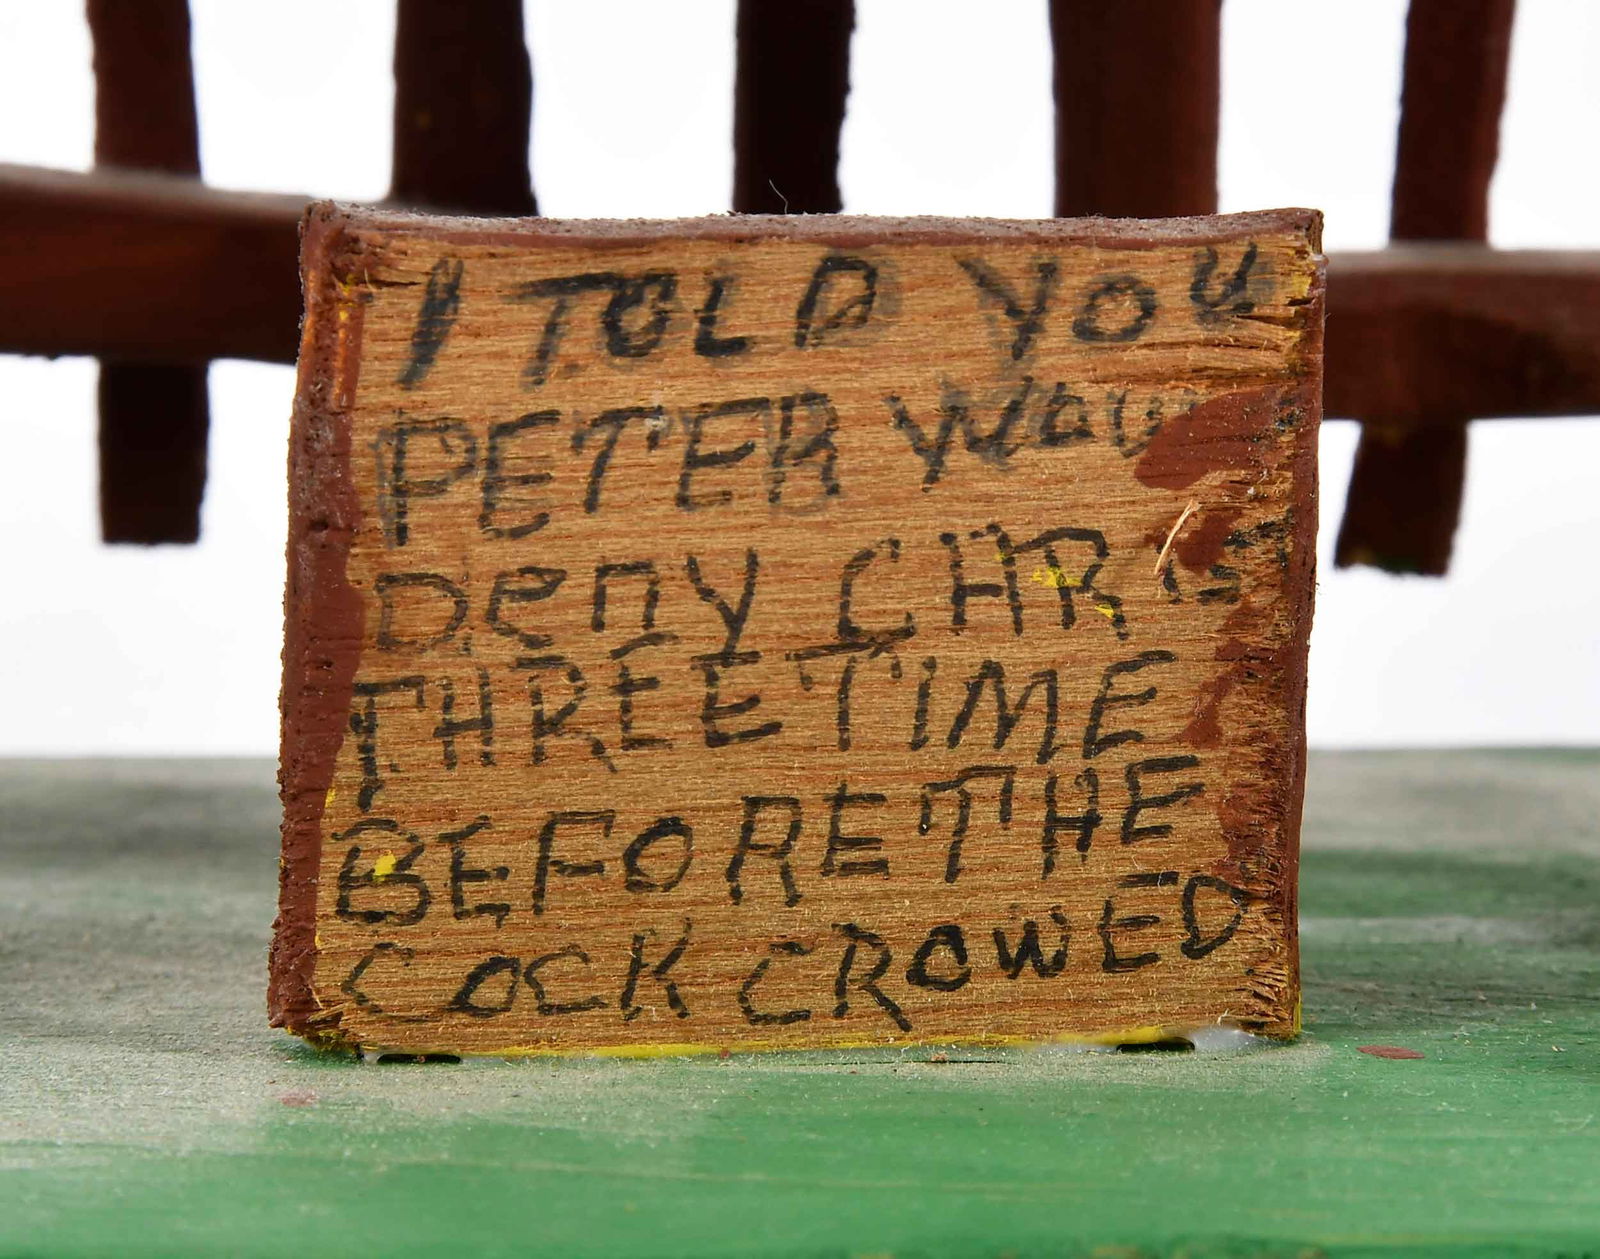 I TOLD YOU
PETER WOU
DENY CHRIST
THREE TIME
BEFORE THE
COCK CROWED